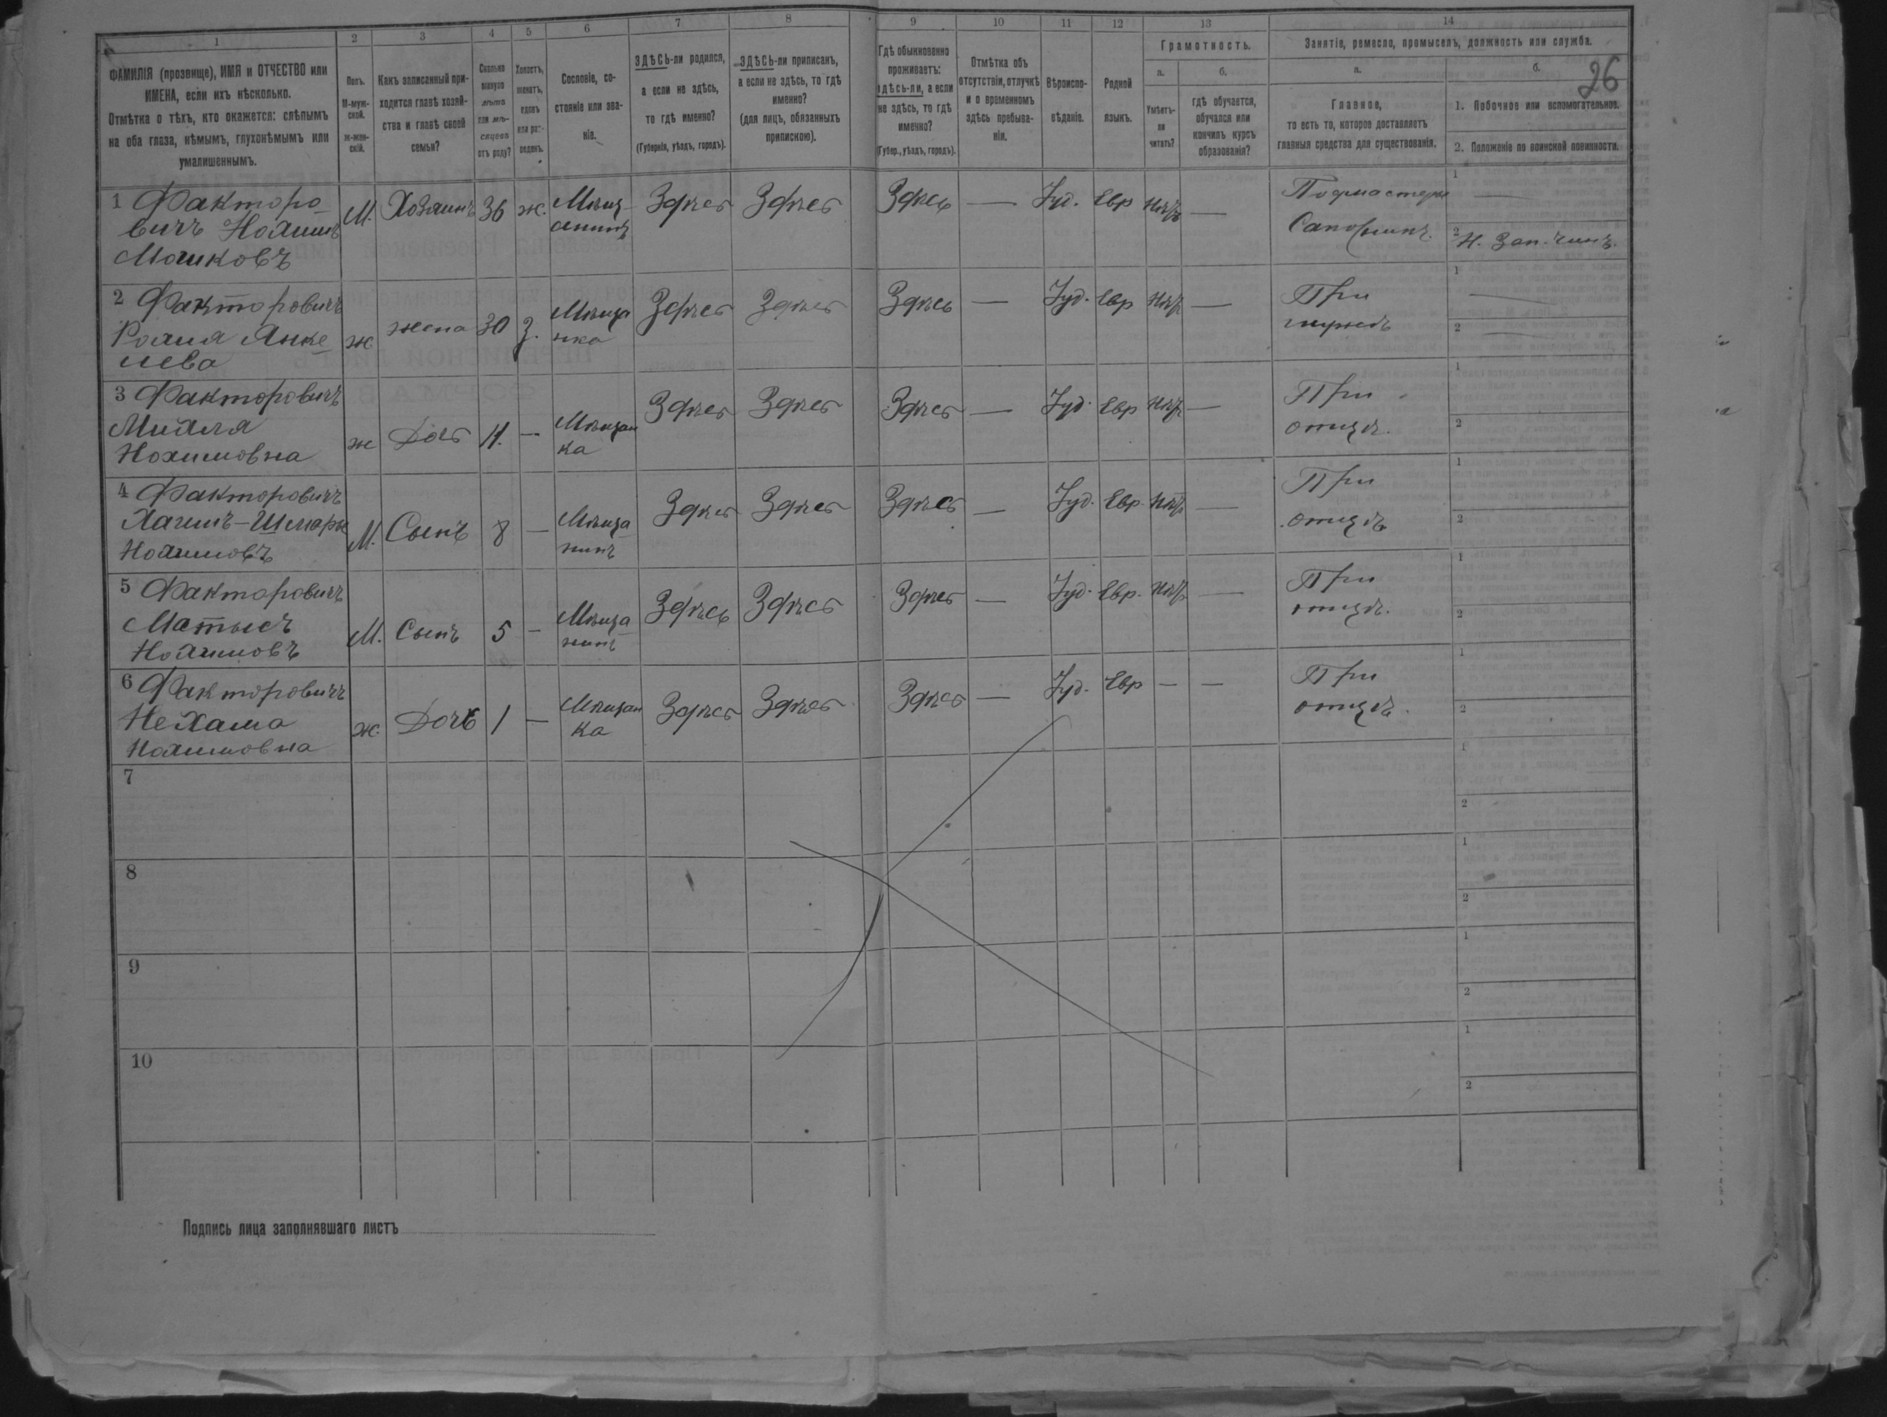 26
1 2 3 4 5 6 7 8 9 10 11 12 13 14
ФАМИЛІЯ (прозвище), ИМЯ и ОТЧЕСТВО или
ИМЕНА, если ихъ нѣсколько.
Отмѣтка о тѣхъ, кто окажется: слѣпымъ
на оба глаза, нѣмымъ, глухонѣмымъ или
умалишеннымъ.
Полъ.
М-муж-
ской.
Ж-жен-
скій.
Какъ записанный при-
ходится главѣ хозяй-
ства и главѣ своей
семьи?
Сколько
минуло
лѣтъ
или мѣ-
сяцевъ
отъ роду?
Холостъ,
женатъ,
вдовъ
или раз-
веденъ.
Сословіе, со-
стояніе или зва-
ніе.
ЗДѢСЬ-ли родился,
а если не здѣсь,
то гдѣ именно?
(Губернія, уѣздъ, городъ).
ЗДѢСЬ-ли приписанъ,
а если не здѣсь, то гдѣ
именно?
(для лицъ, обязанныхъ
припискою).
Гдѣ обыкновенно
проживаетъ:
здѣсь-ли, а если
не здѣсь, то гдѣ
именно?
(Губер., уѣздъ, городъ).
Отмѣтка объ
отсутствіи, отлучкѣ
и о временномъ
здѣсь пребыва-
ніи.
Вѣроиспо-
вѣданіе.
Родной
языкъ.
Грамотность.
а.
Умѣетъ-
ли
читать?
б.
гдѣ обучается,
обучался или
кончилъ курсъ
образованія?
Занятіе, ремесло, промыселъ, должность или служба.
а.
Главное,
то есть то, которое доставляетъ
главныя средства для существованія.
б.
1. Побочное или вспомогательное.
2. Положеніе по воинской повинности.
1 Факторо-
вичъ Нохимъ
Мошковъ
М. Хозяинъ 36 ж. Мѣщ-
анинъ
Здѣсь Здѣсь Здѣсь — Іуд. Евр нѣтъ —
Подмастерье
Сапожникъ.
1 —
2
2 Факторовичъ
Янке-
лева
ж жена 30 З. Мѣща
нка
Здѣсь Здѣсь Здѣсь — Іуд. Евр нѣтъ —
При
мужѣ
1 —
2 —
3 Факторовичъ
Нохимовна
ж Дочь 11. — Мѣщан
ка
Здѣсь Здѣсь Здѣсь — Іуд. Евр нѣтъ —
При
отцѣ.
1
2
4 Факторовичъ
Нохимовъ
М. Сынъ 8 — Мѣща
нинъ
Здѣсь Здѣсь Здѣсь — Іуд. Евр. нѣтъ —
При
отцѣ
1
2
5 Факторовичъ
Матысъ
Нохимовъ
М. Сынъ 5 — Мѣща
нинъ
Здѣсь Здѣсь Здѣсь — Іуд. Евр. нѣтъ —
При
отцѣ.
1
2
6 Факторовичъ
Нехама
Нохимовна
ж. Дочь 1 — Мѣщан
ка
Здѣсь Здѣсь Здѣсь — Іуд. Евр — —
При
отцѣ.
1
2
7
1
2
8
1
2
9
1
2
10
1
2
Подпись лица заполнявшаго листъ